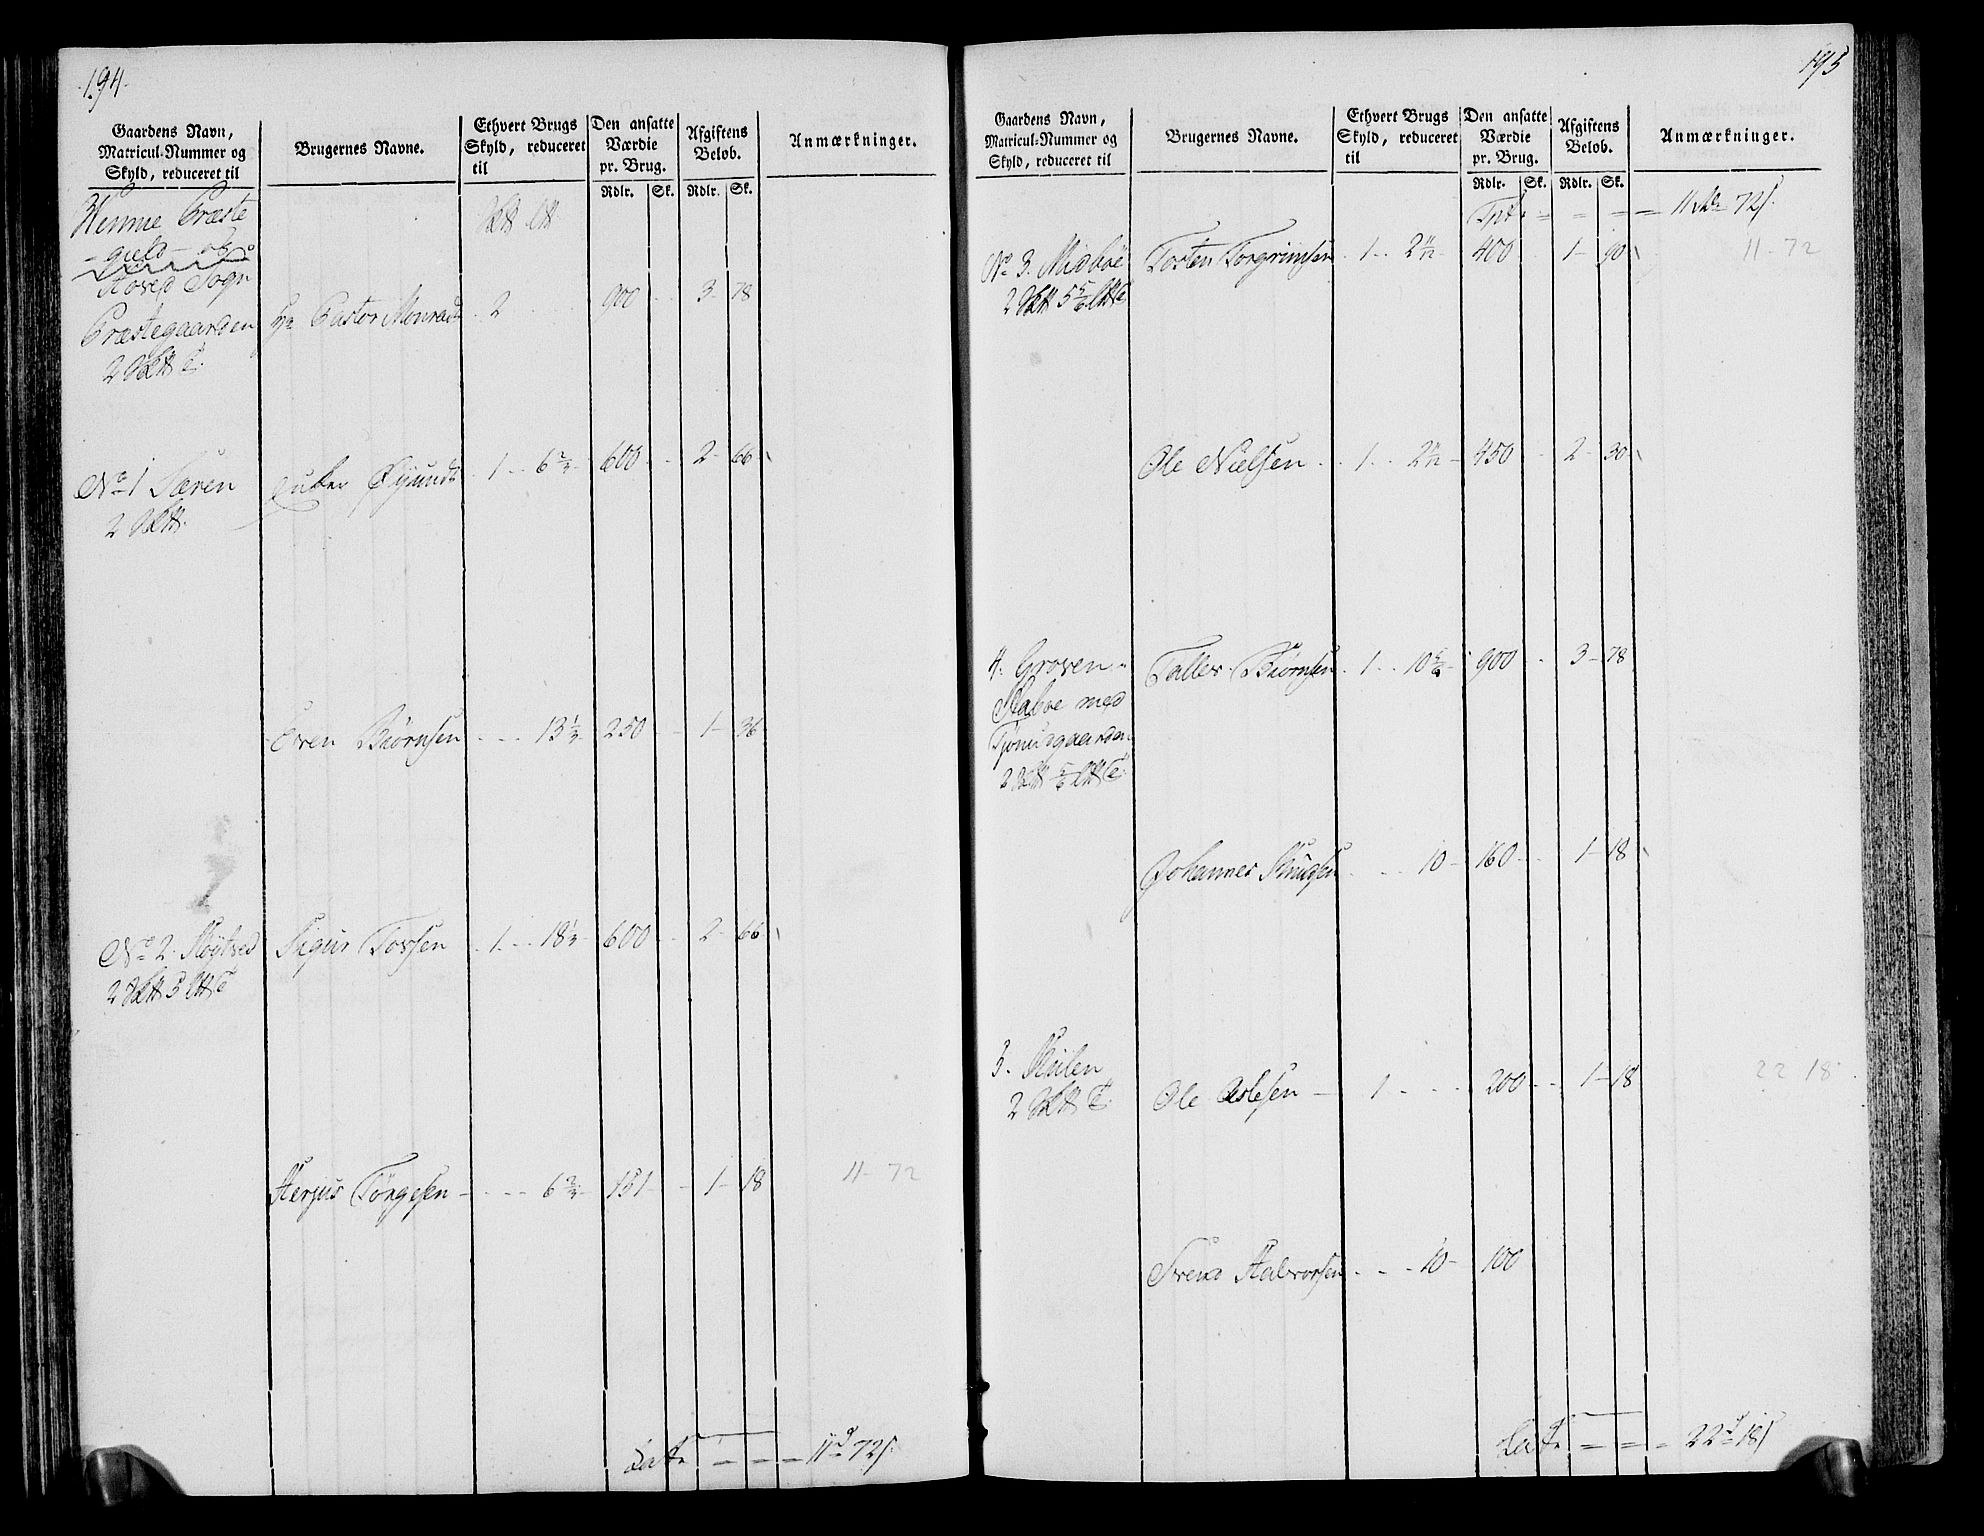 194.
Gaardens Navn,
Matricul-Nummer og
Skyld, reduceret til
Brugernes Navne.
Ethvert Brugs
Skyld, reduceret
til
Den ansatte
Værdie
pr. Brug.
Afgiftens
Beløb.
Anmærkninger.
Rdlr. Sk. Rdlr. Sk.
Præste
gield og
Hoved Sogn
Præstegaarden
2
Hr Pastor Monrad 2 900 3 - 78
No 1 Sæven
2
Øyunds 1 6 2/3 600 2 - 66
Even Biørnsen 13 1/3 250 1 - 36
No 2. Høytved
2 5
Sigur Tovsen 1 18 1/3 600 2 - 66
Herjus Tørgesen 6 2/3 151 1 - 18 11 - 72
Lat. = = = 11 d 72 s
195
Gaardens Navn,
Matricul-Nummer og
Skyld, reduceret til
Brugernes Navne.
Ethvert Brugs
Skyld, reduceret
til
Den ansatte
Værdie
pr. Brug.
Afgiftens
Beløb.
Anmærkninger.
Rdlr. Sk. Rdlr. Sk.
Tnt. = = = = 11 72 s
No 3. Midbøe Tosten Torgrimsen 1 2 11/12 400 1 - 90 11 - 72
2 5 5/6
Ole Nielsen 1 2 11/12 450 2 - 30
4. Groven
Haboe med
Tjønusgaarden
2 5/6
Tallev Biørnsen 1 10 5/6 900 3 - 78
Johannes Knudsen 10 160 1 - 18
5. Kiilen
2
Ole Aslesen 1 200 1 - 18 22 18
Svend Halvorsen 10 100
Lat. = = = 22 d 18 s